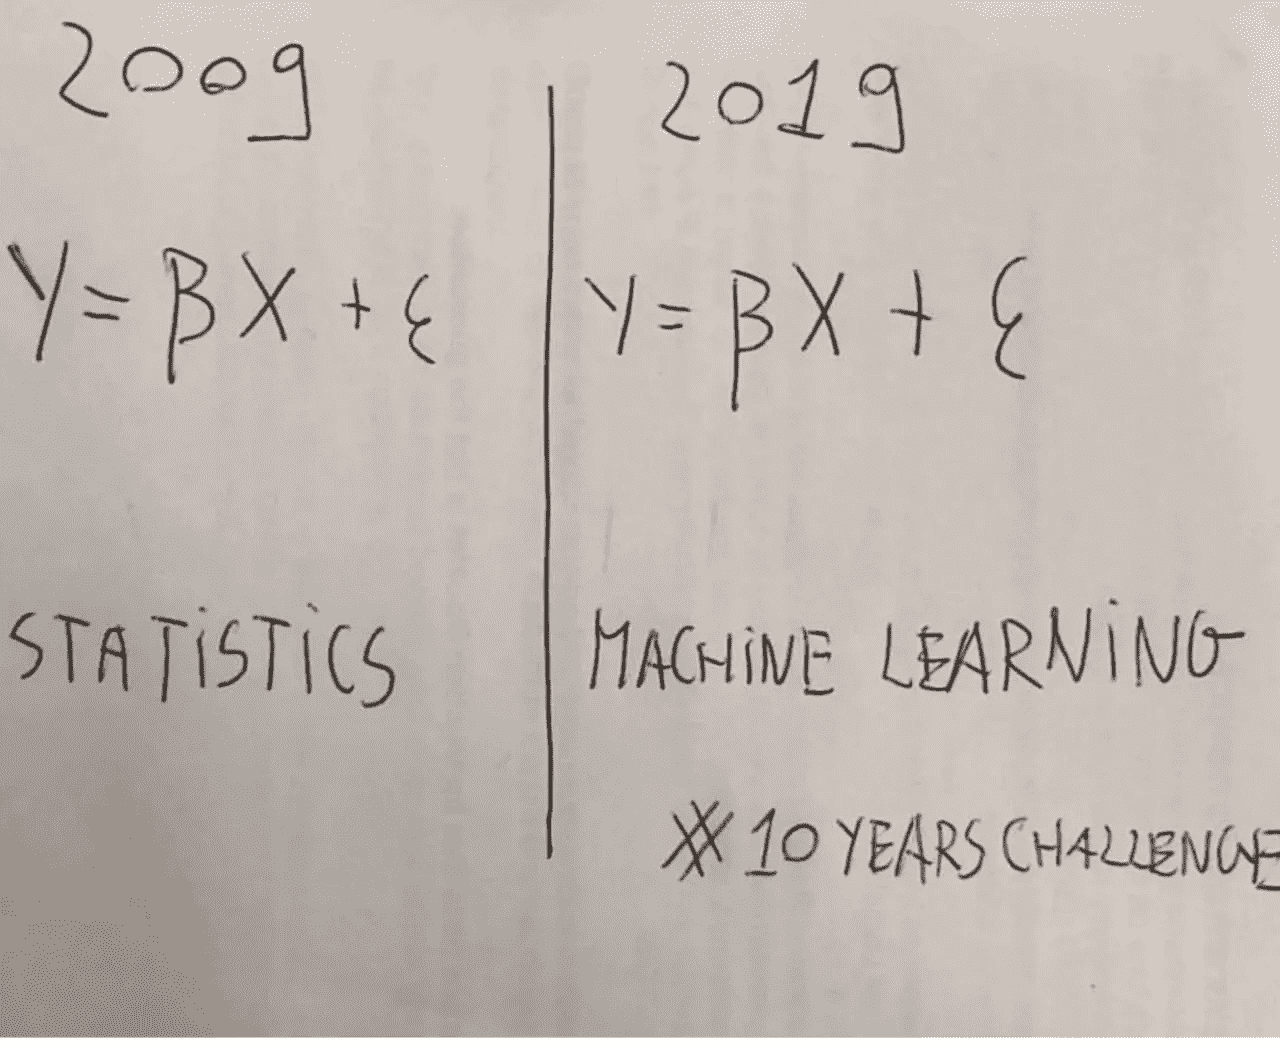 2009
Y = βX + ε
STATiSTiCS
2019
Y = βX + ε
MACHiNE LEARNiNG
#10YEARSCHALLENGE